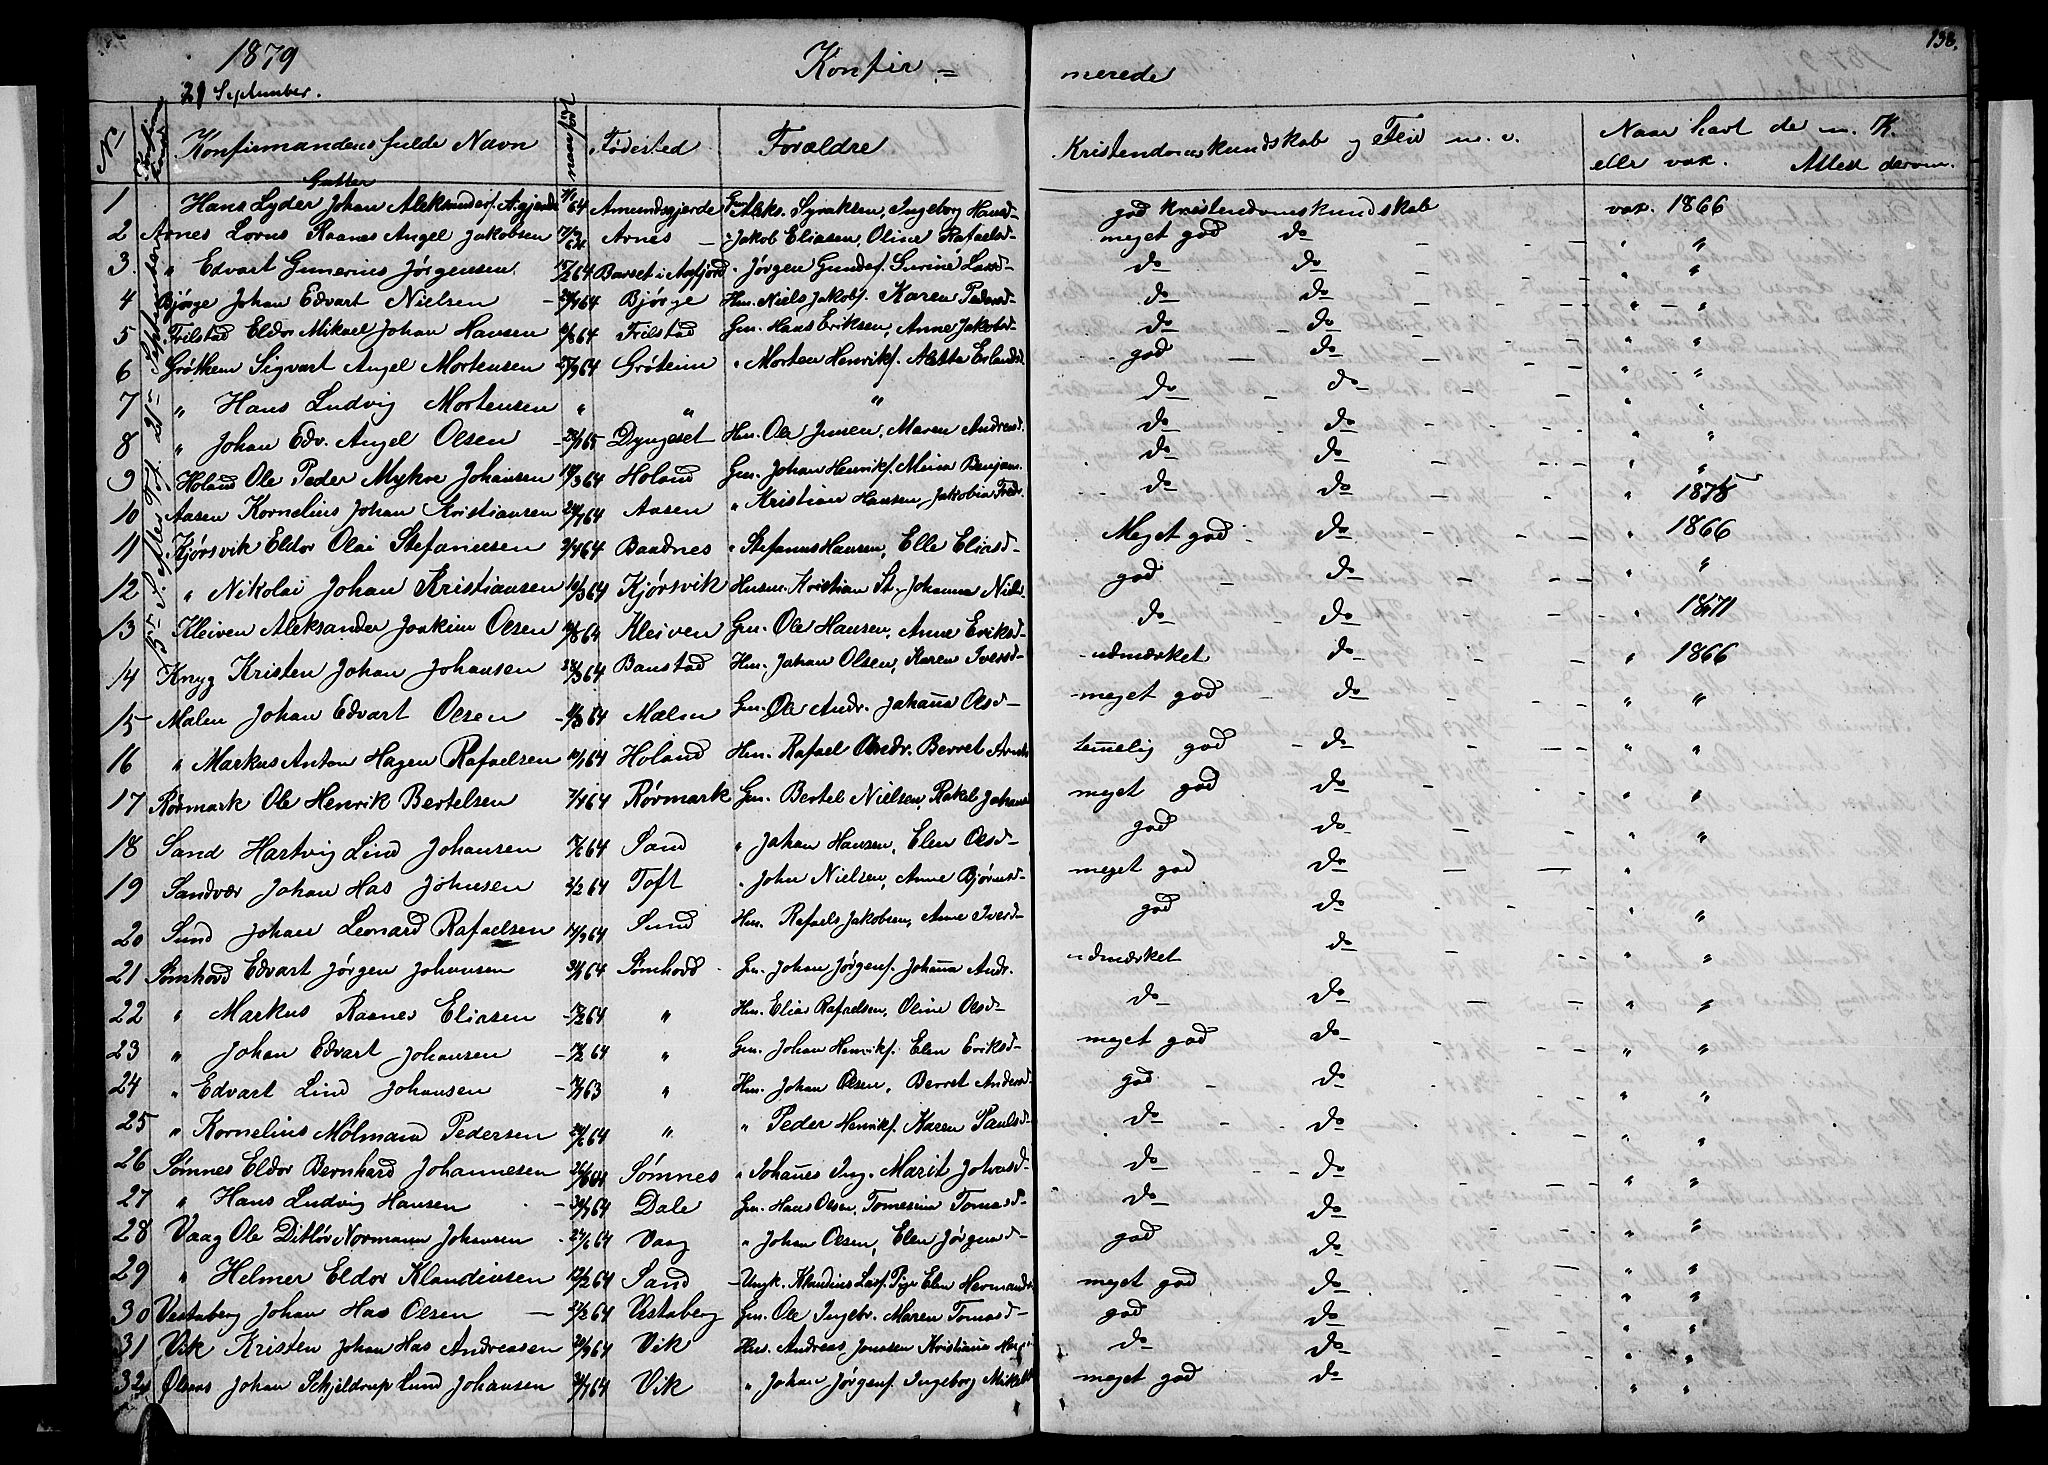 1879
Konfir =
merede
138.
21 September.
N
Konfirmandens fulde Navn
naar fød
Fødested
Forældre
Kristendomskundskab og Flid m. v.
Naar havt de n. K.
eller vax. Attest derom.
15de S. efter Tref. 21de September
Gutter
1 Hans Lyder Johan Aleksanders. 64 Amundsgjerde Aleks. Syraksen, Ingeborg Hansd- god Kristendomskundskab vax. 1866
2 Arnes Lorns Raanes Angel Jakobsen Arnes - " Jakob Eliasen, Oline Rafaelsd- meget god do " "
3. " Edvart Gunerius Jørgensen 15/2 64 Barset i " Jørgen Gundes. Gurine Larsd- do do " "
4 Bjørge Johan Edvart Nielsen - 64 Bjørge Hm. Niels Jakobs. Karen Pedersd- do do " "
5 Frilstad Eldor Mikael Johan Hansen 64 Frilstad Gm. Hans Eriksen, Anne Jakobsd- do do " "
6 Grøthem Sigvart Angel Mortensen 27/9 64 Grøteim " Morten Henriks. Aletta Erlandsd. god - do " "
7 " Hans Ludvig Mortensen " " " do do " "
8 " Johan Edv. Angel Olsen - 65 Dyngeset Hm. Ole Jensen, Maren Andreasd. do do " "
9 Holand Ole Peder Mykve Johansen 19/3 64 Holand Gm. Johan Henriks. Mina Benjam. do do " "
10 Aasen Kornelius Johan Kristiansen 64 Aasen " Kristian Hansen, Jakobia Fredr. do do " 1875
11 Kjørsvik Eldor Olai Stefanusen 9/4 64 Baadnes " Stefanus Hansen, Elle Eliasd- Meget god do " 1866
12 " Nikolai Johan Kristiansen 10/3 64 Kjørsvik Husm. Kristian St. Johanna Nielsd. god - do " "
13 Kleiven Aleksander Joakim Olsen 64 Kleiven Gm. Ole Hansen, Anne Eriksd- do do " 1871
14 Knyg Kristen Johan Johansen 28/3 64 Banstad Hm. Johan Olsen, Karen Iversd- udmærket do " 1866
15 Malen Johan Edvart Olsen - 64 Mælen Gm. Ole Andr. Johanna Olsd- meget god - do " "
16 " Markus Anton Hagen Rafaelsen 64 Holand Hm. Rafael Andr. Berret temmelig god - do " "
17 Rørmark Ole Henrik Bertelsen 7/4 64 Rørmark Gm. Bertel Nielsen, Rakel Johans meget god do " "
18 Sand Hartvig Lind Johansen 64 Sand " Johan Hansen, Elen Olsd- god do " "
19 Sandvær Johan Has Johnsen 3/2 64 Toft " John Nielsen, Anne Bjørnsd- meget god do "
20 Sund Johan Leonard Rafaelsen 64 Sund Hm. Rafaels Jakobsen, Anne Iversd- god do " "
21 Sømhovd Edvart Jørgen Johansen 64 Sømhovd Gm. Johan Jørgens. Johanna Andr. udmærket do " "
22 " Markus Raanes Eliasen - 64 " Hm. Elias Rafaelsen, Oline Olsd- do do " "
23 " Johan Edvart Johansen - 64 " Gm. Johan Henriks. Elen Eriksd- meget god do " "
24 " Edvart Lind Johansen - 63 " Hm. Johan Olsen, Berret Andersd- god - do " "
25 " Kornelius Mølmann Pedersen 64 " " Peder Henriks. Karen Paulsd- do do " "
26 Sømnes Eldor Bernhard Johannesen 64 Sømnes " Johannes Ing. Marit do do " "
27 " Hans Ludvig Hansen - 64 Dale Gm. Hans Olsen, Tomesine Tomasd- do do " "
28 Vaag Ole Ditløv Normann Johansen 24/6 64 Vaag " Johan Olsen, Elen Jørgensd- god do " "
29 " Helmer Eldor Klaudiusen 12/2 64 Sand - Ungk. Klaudius Lars. Pige Elen Hermands. meget god do " "
30 Vestaberg Johan Has Olsen - 64 Vestaberg Gm. Ole Ingebr. Maren Tomasd- god do " "
31 Vik Kristen Johan Has Andreasen 64 Vik Hm. Andreas Jonassen Kristiana do do " "
32 Johan Schjeldrup Lund Johansen 64 Vik " Johan Jørgens. Ingeborg meget god do " "